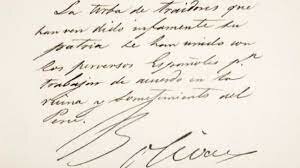 La turba de traidores que
han vendido infamemente su
patria se han unido con
los perversos Españoles pª
trabajar de acuerdo en la
ruina y sometimiento del
Perú.
Bolívar